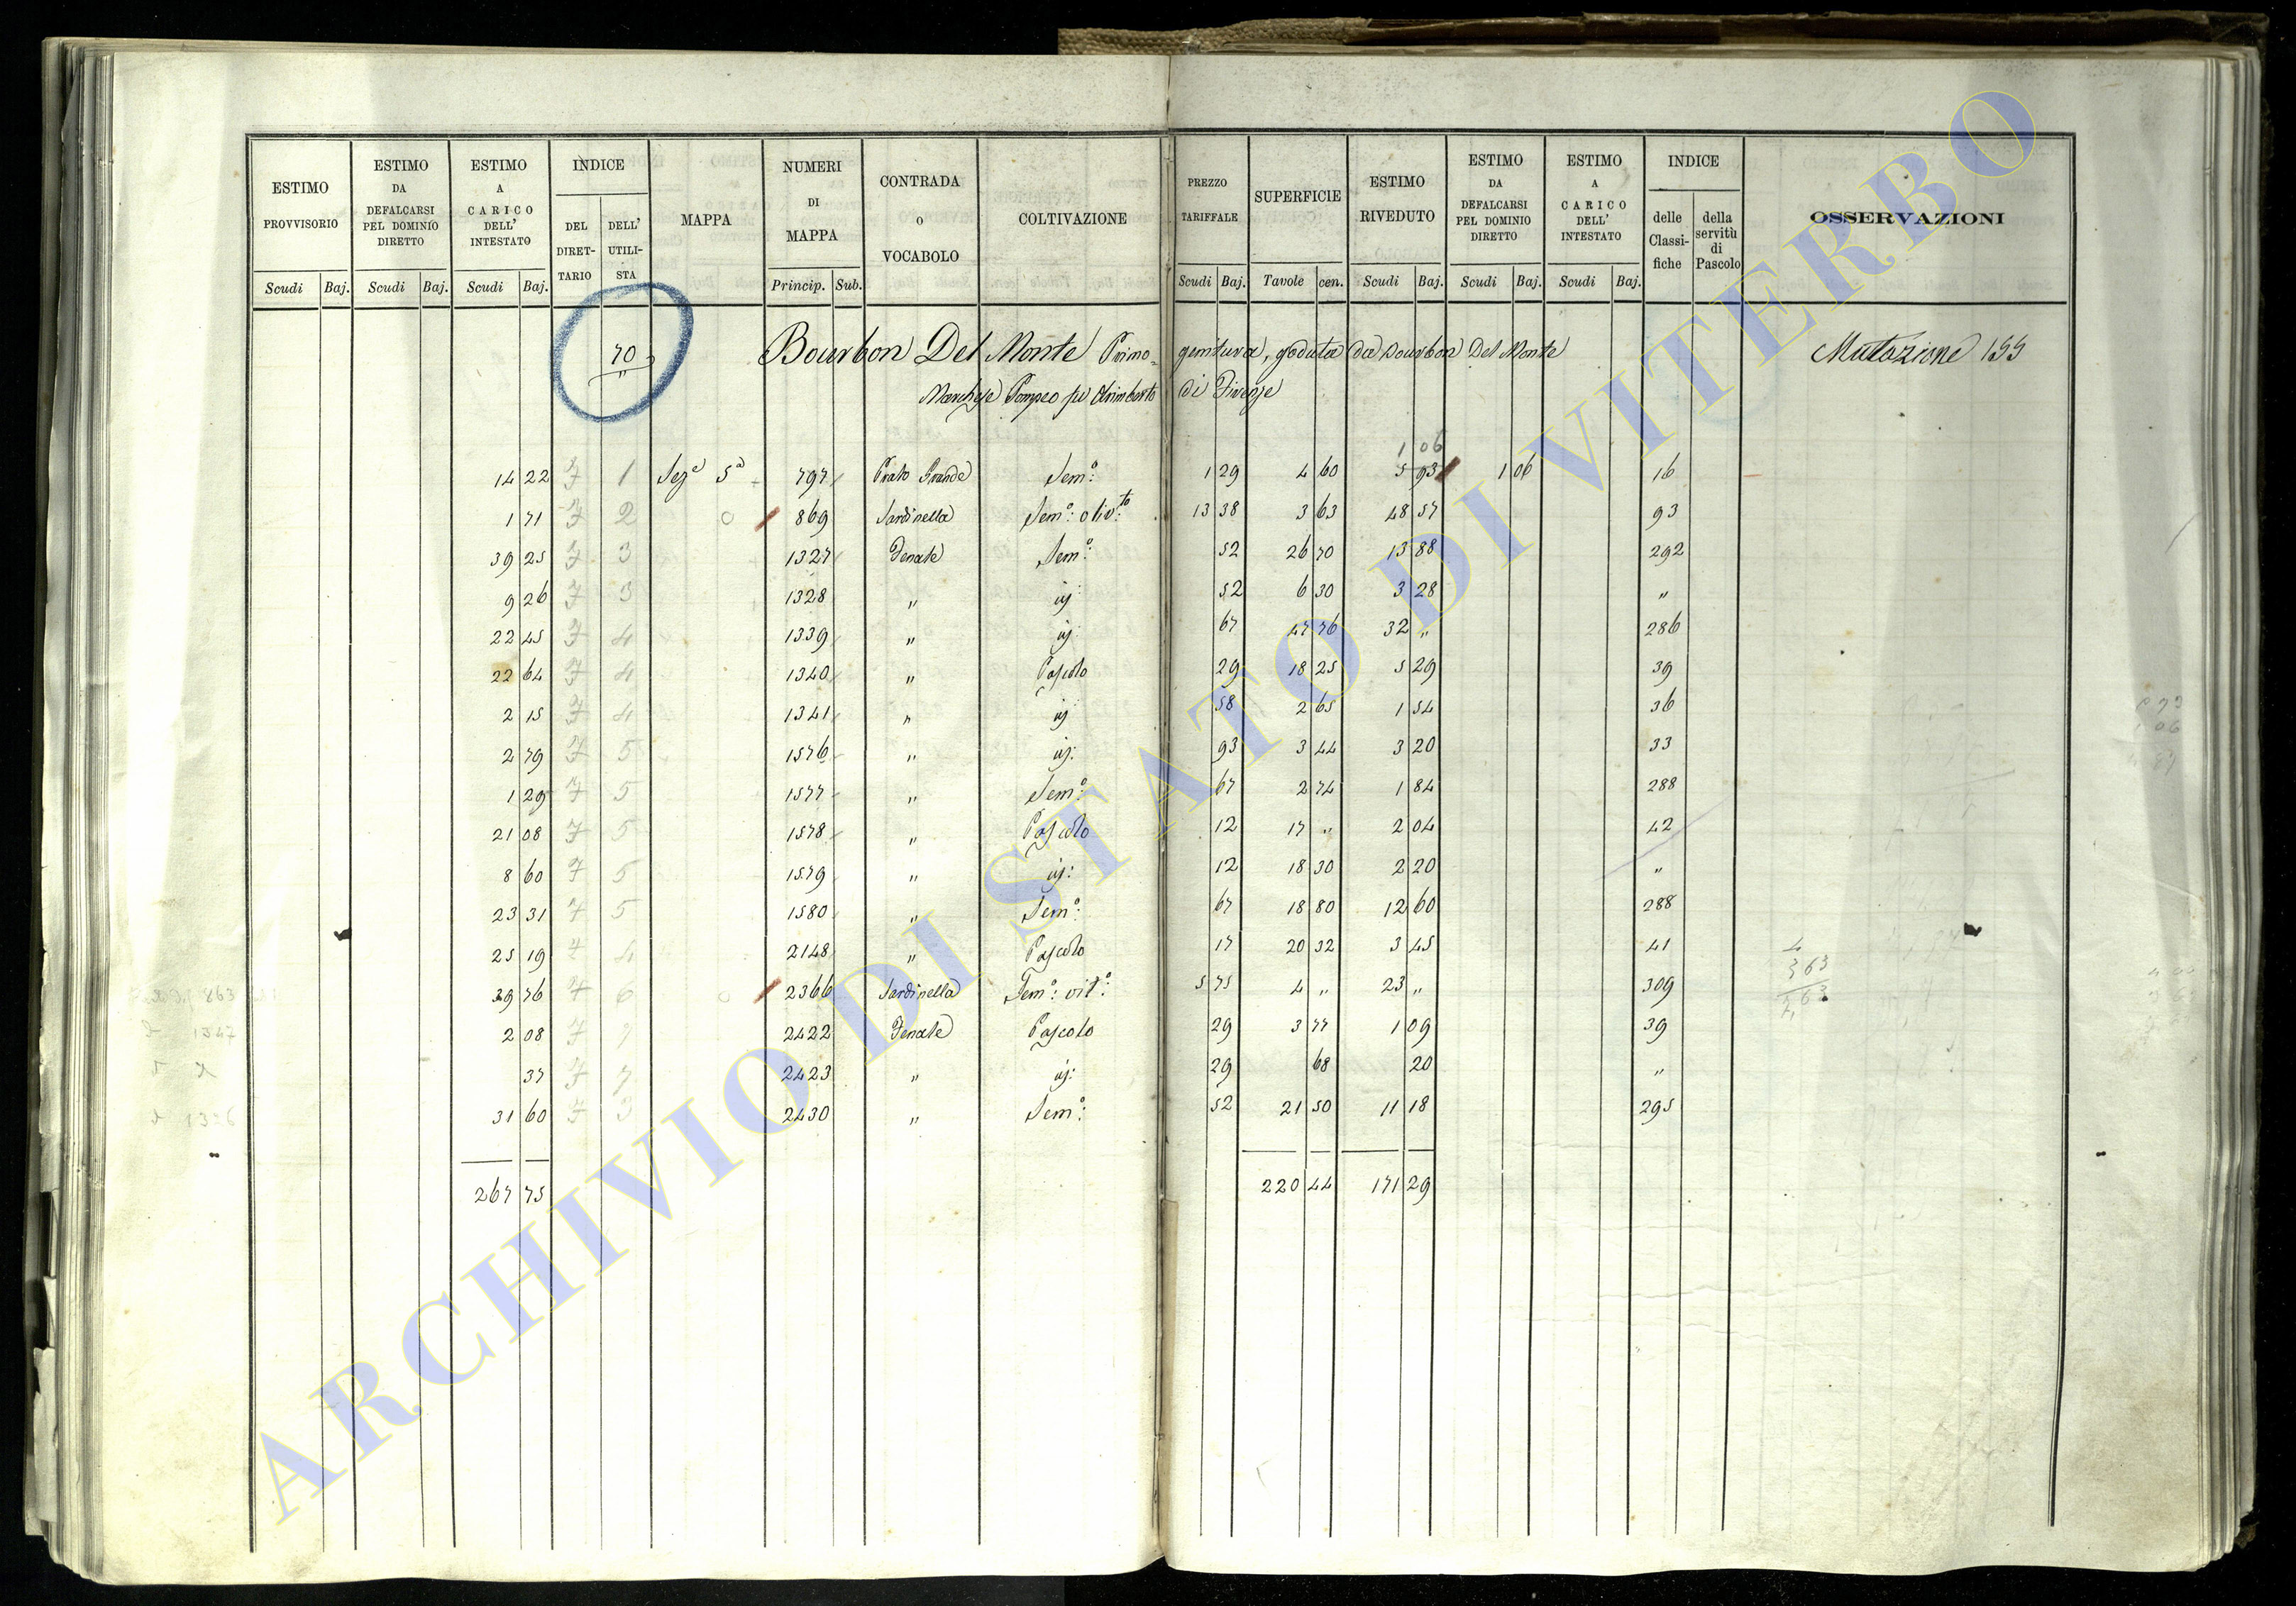 ESTIMO PROVVISORIO | ESTIMO DA DEFALCARSI PEL DOMINIO DIRETTO | ESTIMO A CARICO DELL' INTESTATO | INDICE | MAPPA | NUMERI DI MAPPA | CONTRADA O VOCABOLO | COLTIVAZIONE | PREZZO TARIFFALE | SUPERFICIE | ESTIMO RIVEDUTO | ESTIMO DA DEFALCARSI PEL DOMINIO DIRETTO | ESTIMO A CARICO DELL' INTESTATO | INDICE | OSSERVAZIONI
DEL DIRETTARIO | DELL' UTILISTA | delle Classifiche | della servitù di Pascolo
Scudi | Baj. | Scudi | Baj. | Scudi | Baj. | Princip. | Sub. | Scudi | Baj. | Tavole | cen. | Scudi | Baj. | Scudi | Baj. | Scudi | Baj.
70 Bourbon Del Monte Primogenitura, goduta da Bourbon Del Monte Mutazione 155
Marchese Pompeo di Firenze
1 06
14 22 7 1 Sez.e 5a 797 Prato Grande Sem.o: 1 29 4 60 5 93 1 06 16
1 71 7 2 869 Sardinella Sem.o: oliv.to 13 38 3 63 48 57 93
39 25 7 3 1327 Fenale Sem.o: 52 26 70 13 88 292
9 26 7 3 1328 " iij: 52 6 30 3 28 "
22 45 7 4 1339 " iij: 67 47 76 32 " 286
22 64 7 4 1340 " Pascolo 29 18 25 5 29 39
2 15 7 4 1341 " iij: 58 2 65 1 54 36
2 79 7 5 1576 " iij: 93 3 44 3 20 33
1 29 7 5 1577 " Sem.o: 67 2 74 1 84 288
21 08 7 5 1578 " Pascolo 12 17 " 2 04 42
8 60 7 5 1579 " iij: 12 18 30 2 20 "
23 31 7 5 1580 " Sem.o: 67 18 80 12 60 288
25 19 7 4 2148 " Pascolo 17 20 32 3 45 41
39 76 7 6 2366 Sardinella Sem.o: vit.o: 5 75 4 " 23 " 309
2 08 7 7 2422 Fenale Pascolo 29 3 77 1 09 39
37 7 7 2423 " iij: 29 68 20 "
31 60 7 3 2430 " Sem.o: 52 21 50 11 18 295
267 75 220 44 171 29
4
3 63
7,63
ARCHIVIO DI STATO DI VITERBO